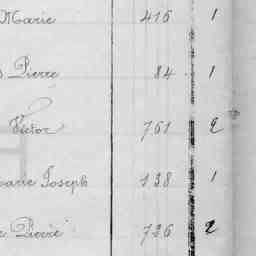 Marie 416 1
Pierre 84 1
Victor 761 2
Joseph 138 1
Pierre 726 2